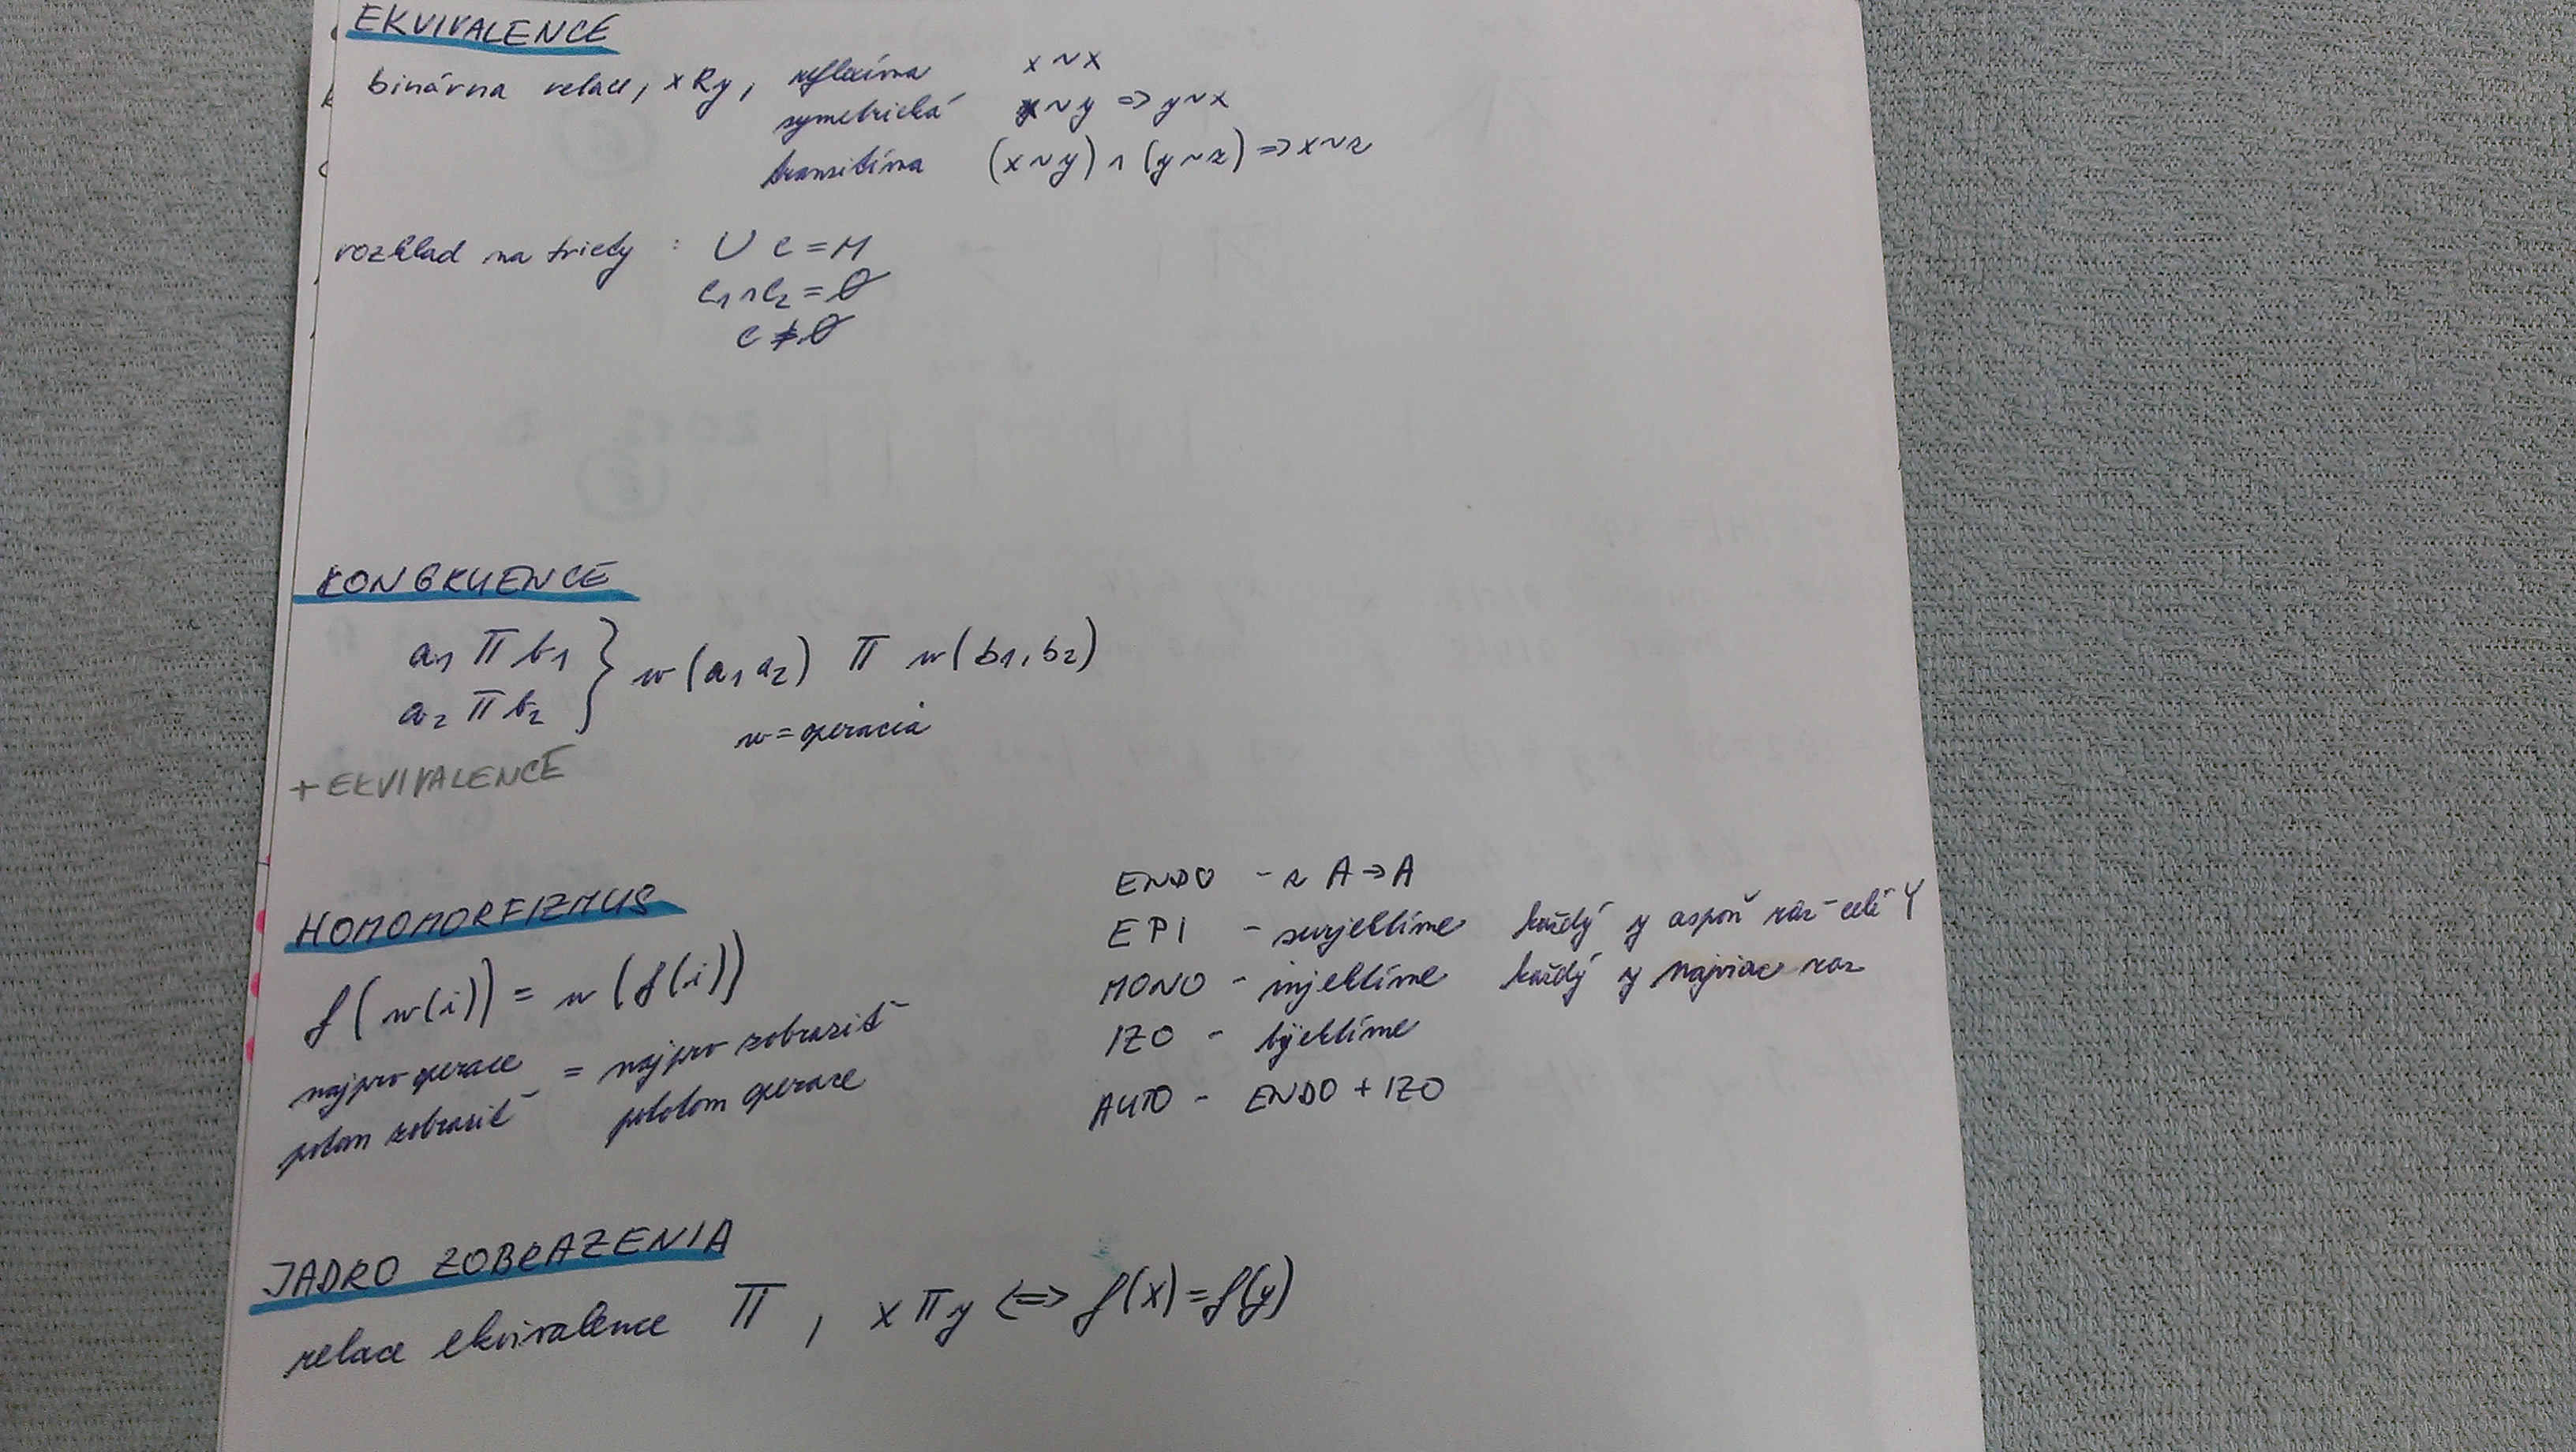 EKVIVALENCE
binárna relace, x R y, reflexívna x ~ x
symetrická x ~ y => y ~ x
transitívna (x ~ y) ∧ (y ~ z) => x ~ z
rozklad na triedy : ∪ C = M
C1 ∩ C2 = ∅
C ≠ ∅
KONGRUENCE
a1 π b1 } w(a1 a2) π w(b1, b2)
a2 π b2
w = operacia
+ EKVIVALENCE
HOMOMORFIZMUS
f(w(i)) = w(f(i))
najprv operace = najprv zobraziť
potom zobraziť pototom operace
ENDO - z A → A
EPI - surjektívne každý y aspoň raz - celé Y
MONO - injektívne každý y najviac raz
IZO - bijektívne
AUTO - ENDO + IZO
JADRO ZOBRAZENIA
relace ekvivalence π , x π y <=> f(x) = f(y)